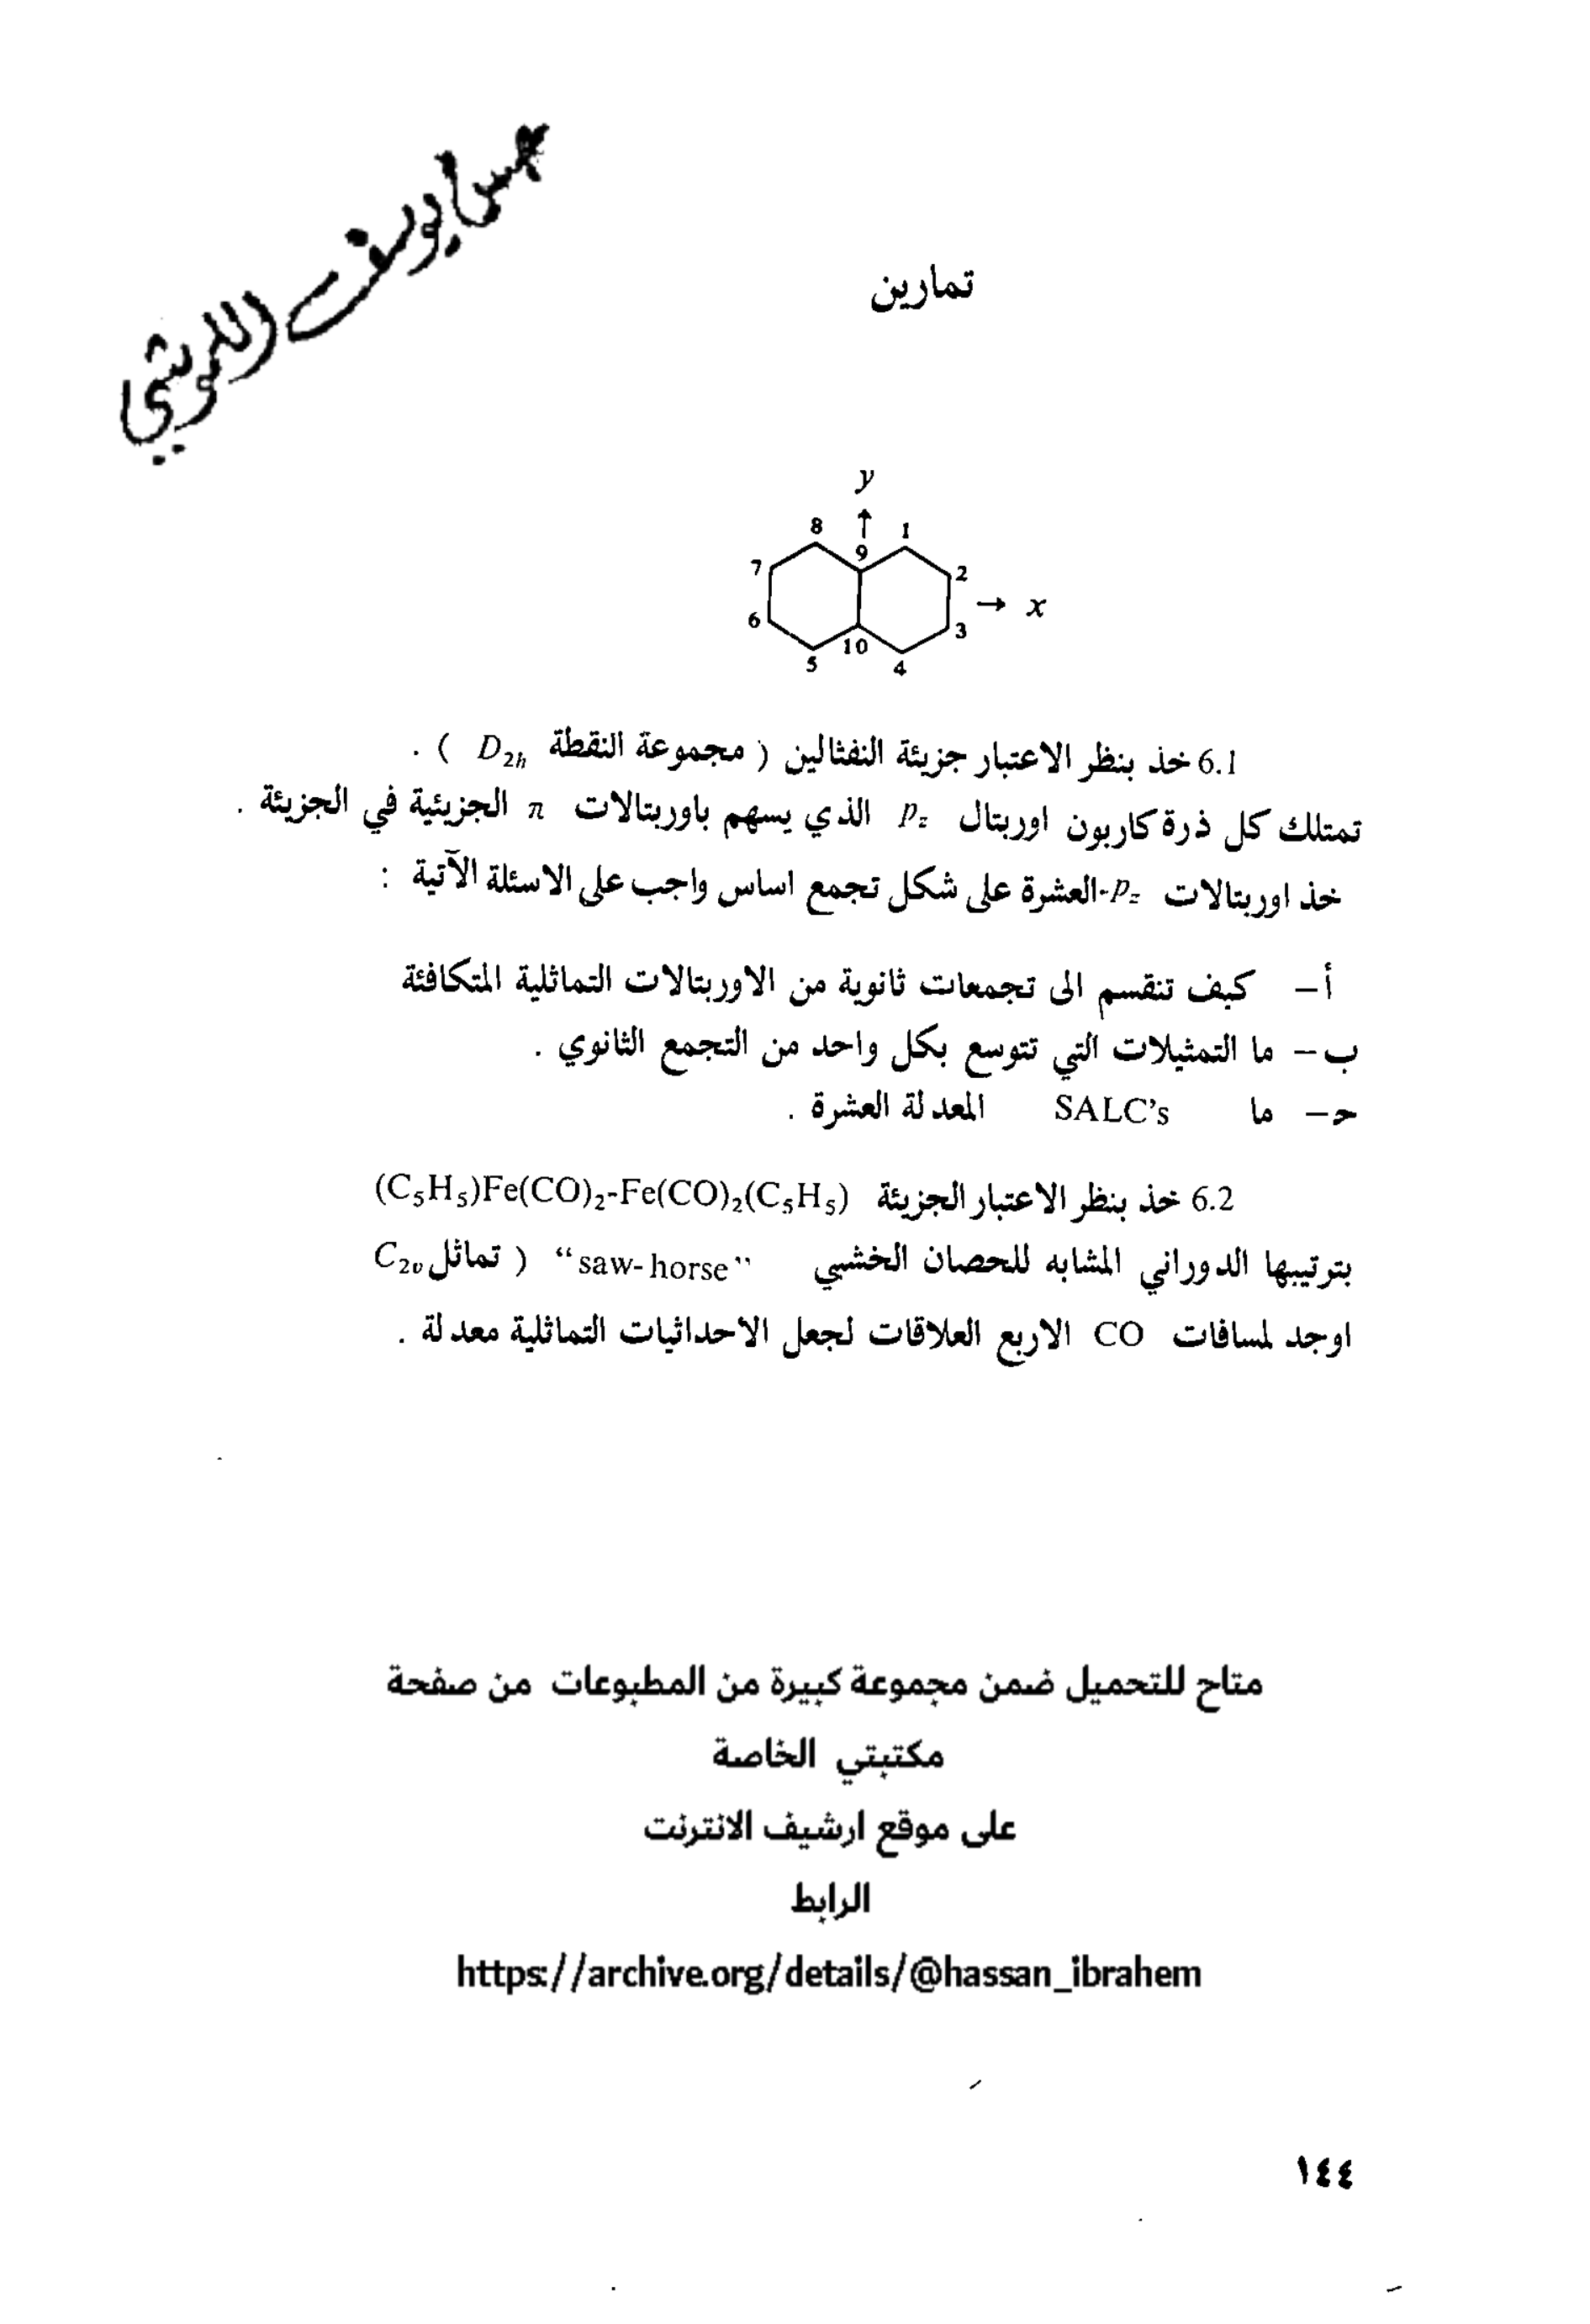 حسن يوسف
تمارين
y
8 ↑ 1
9
7 2
→ x
6 3
10
5 4
6.1 خذ بنظر الاعتبار جزيئة النفثالين ( مجموعة النقطة D₂ₕ ) .
تمتلك كل ذرة كاربون اوربتال p_z الذي يسهم باوربتالات π الجزيئية في الجزيئة .
خذ اوربتالات p_z-العشرة على شكل تجمع اساس واجب على الاسئلة الآتية :
أ – كيف تنقسم الى تجمعات ثانوية من الاوربتالات التماثلية المتكافئة
ب – ما التمثيلات التي تتوسع بكل واحد من التجمع الثانوي .
حـ – ما SALC's المعدلة العشرة .
6.2 خذ بنظر الاعتبار الجزيئة (C₅H₅)Fe(CO)₂-Fe(CO)₂(C₅H₅)
بترتيبها الدوراني المشابه للحصان الخشبي “saw-horse” ( تماثل C₂ᵥ
اوجد لمسافات CO الاربع العلاقات لجعل الاحداثيات التماثلية معدلة .
متاح للتحميل ضمن مجموعة كبيرة من المطبوعات من صفحة
مكتبتي الخاصة
على موقع ارشيف الانترنت
الرابط
https://archive.org/details/@hassan_ibrahem
١٤٤